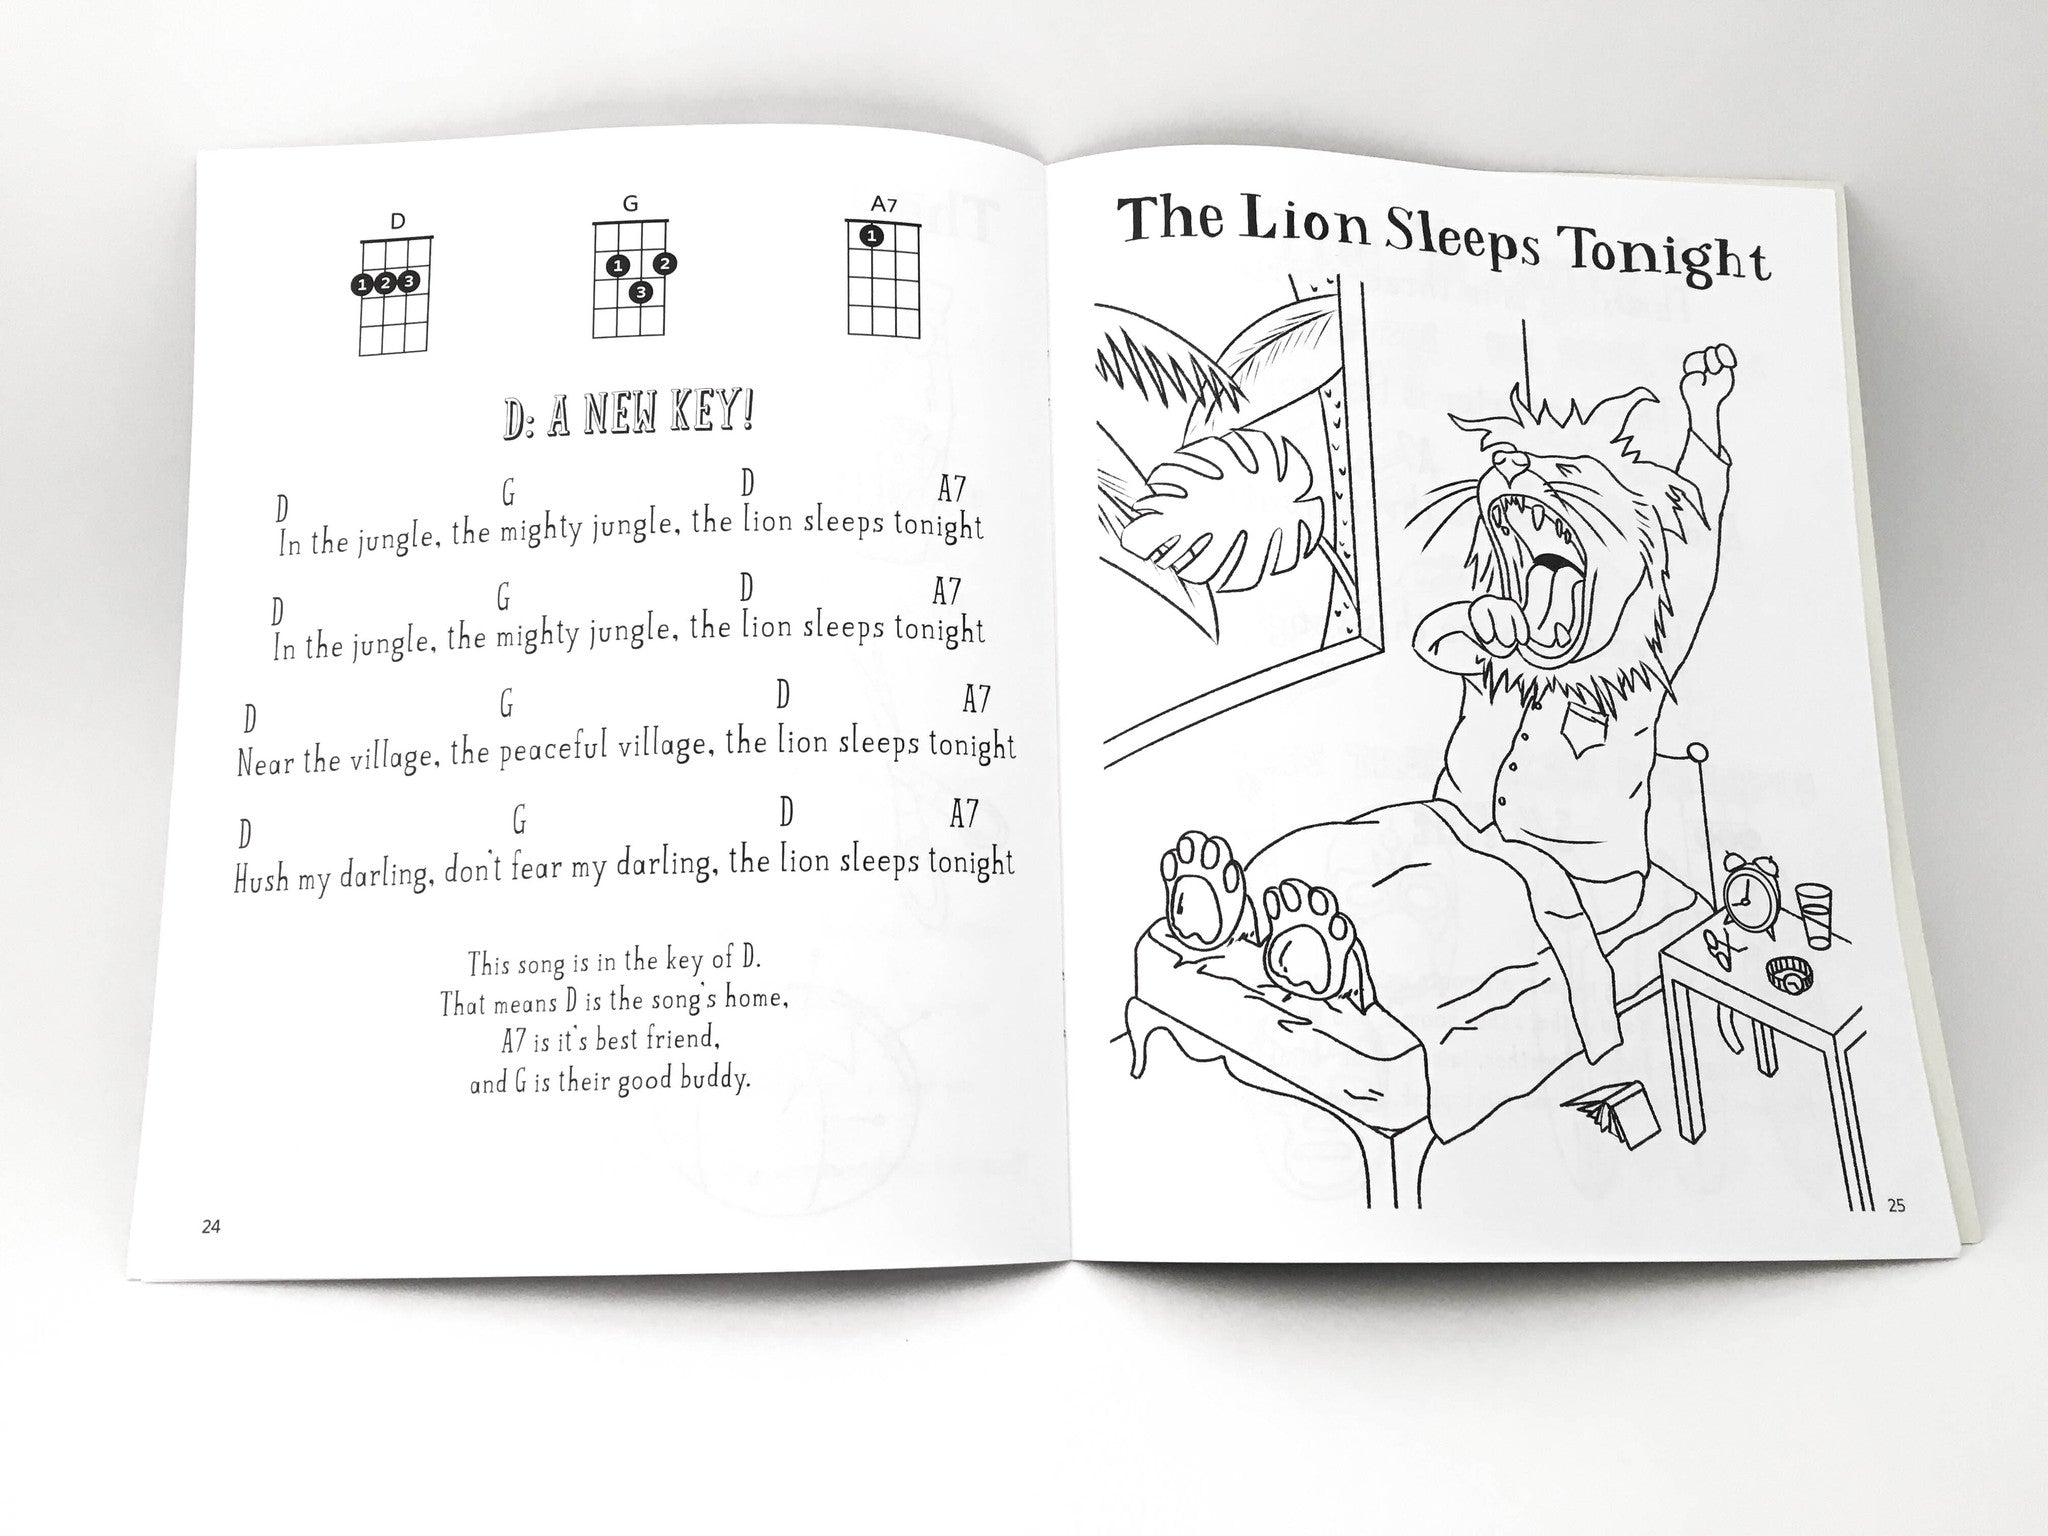 D G A7
1 2 3 1 2 3 1
D: A NEW KEY!
D G D A7
In the jungle, the mighty jungle, the lion sleeps tonight
D G D A7
In the jungle, the mighty jungle, the lion sleeps tonight
D G D A7
Near the village, the peaceful village, the lion sleeps tonight
D G D A7
Hush my darling, don't fear my darling, the lion sleeps tonight
This song is in the key of D.
That means D is the song's home,
A7 is it's best friend,
and G is their good buddy.
24
The Lion Sleeps Tonight
25